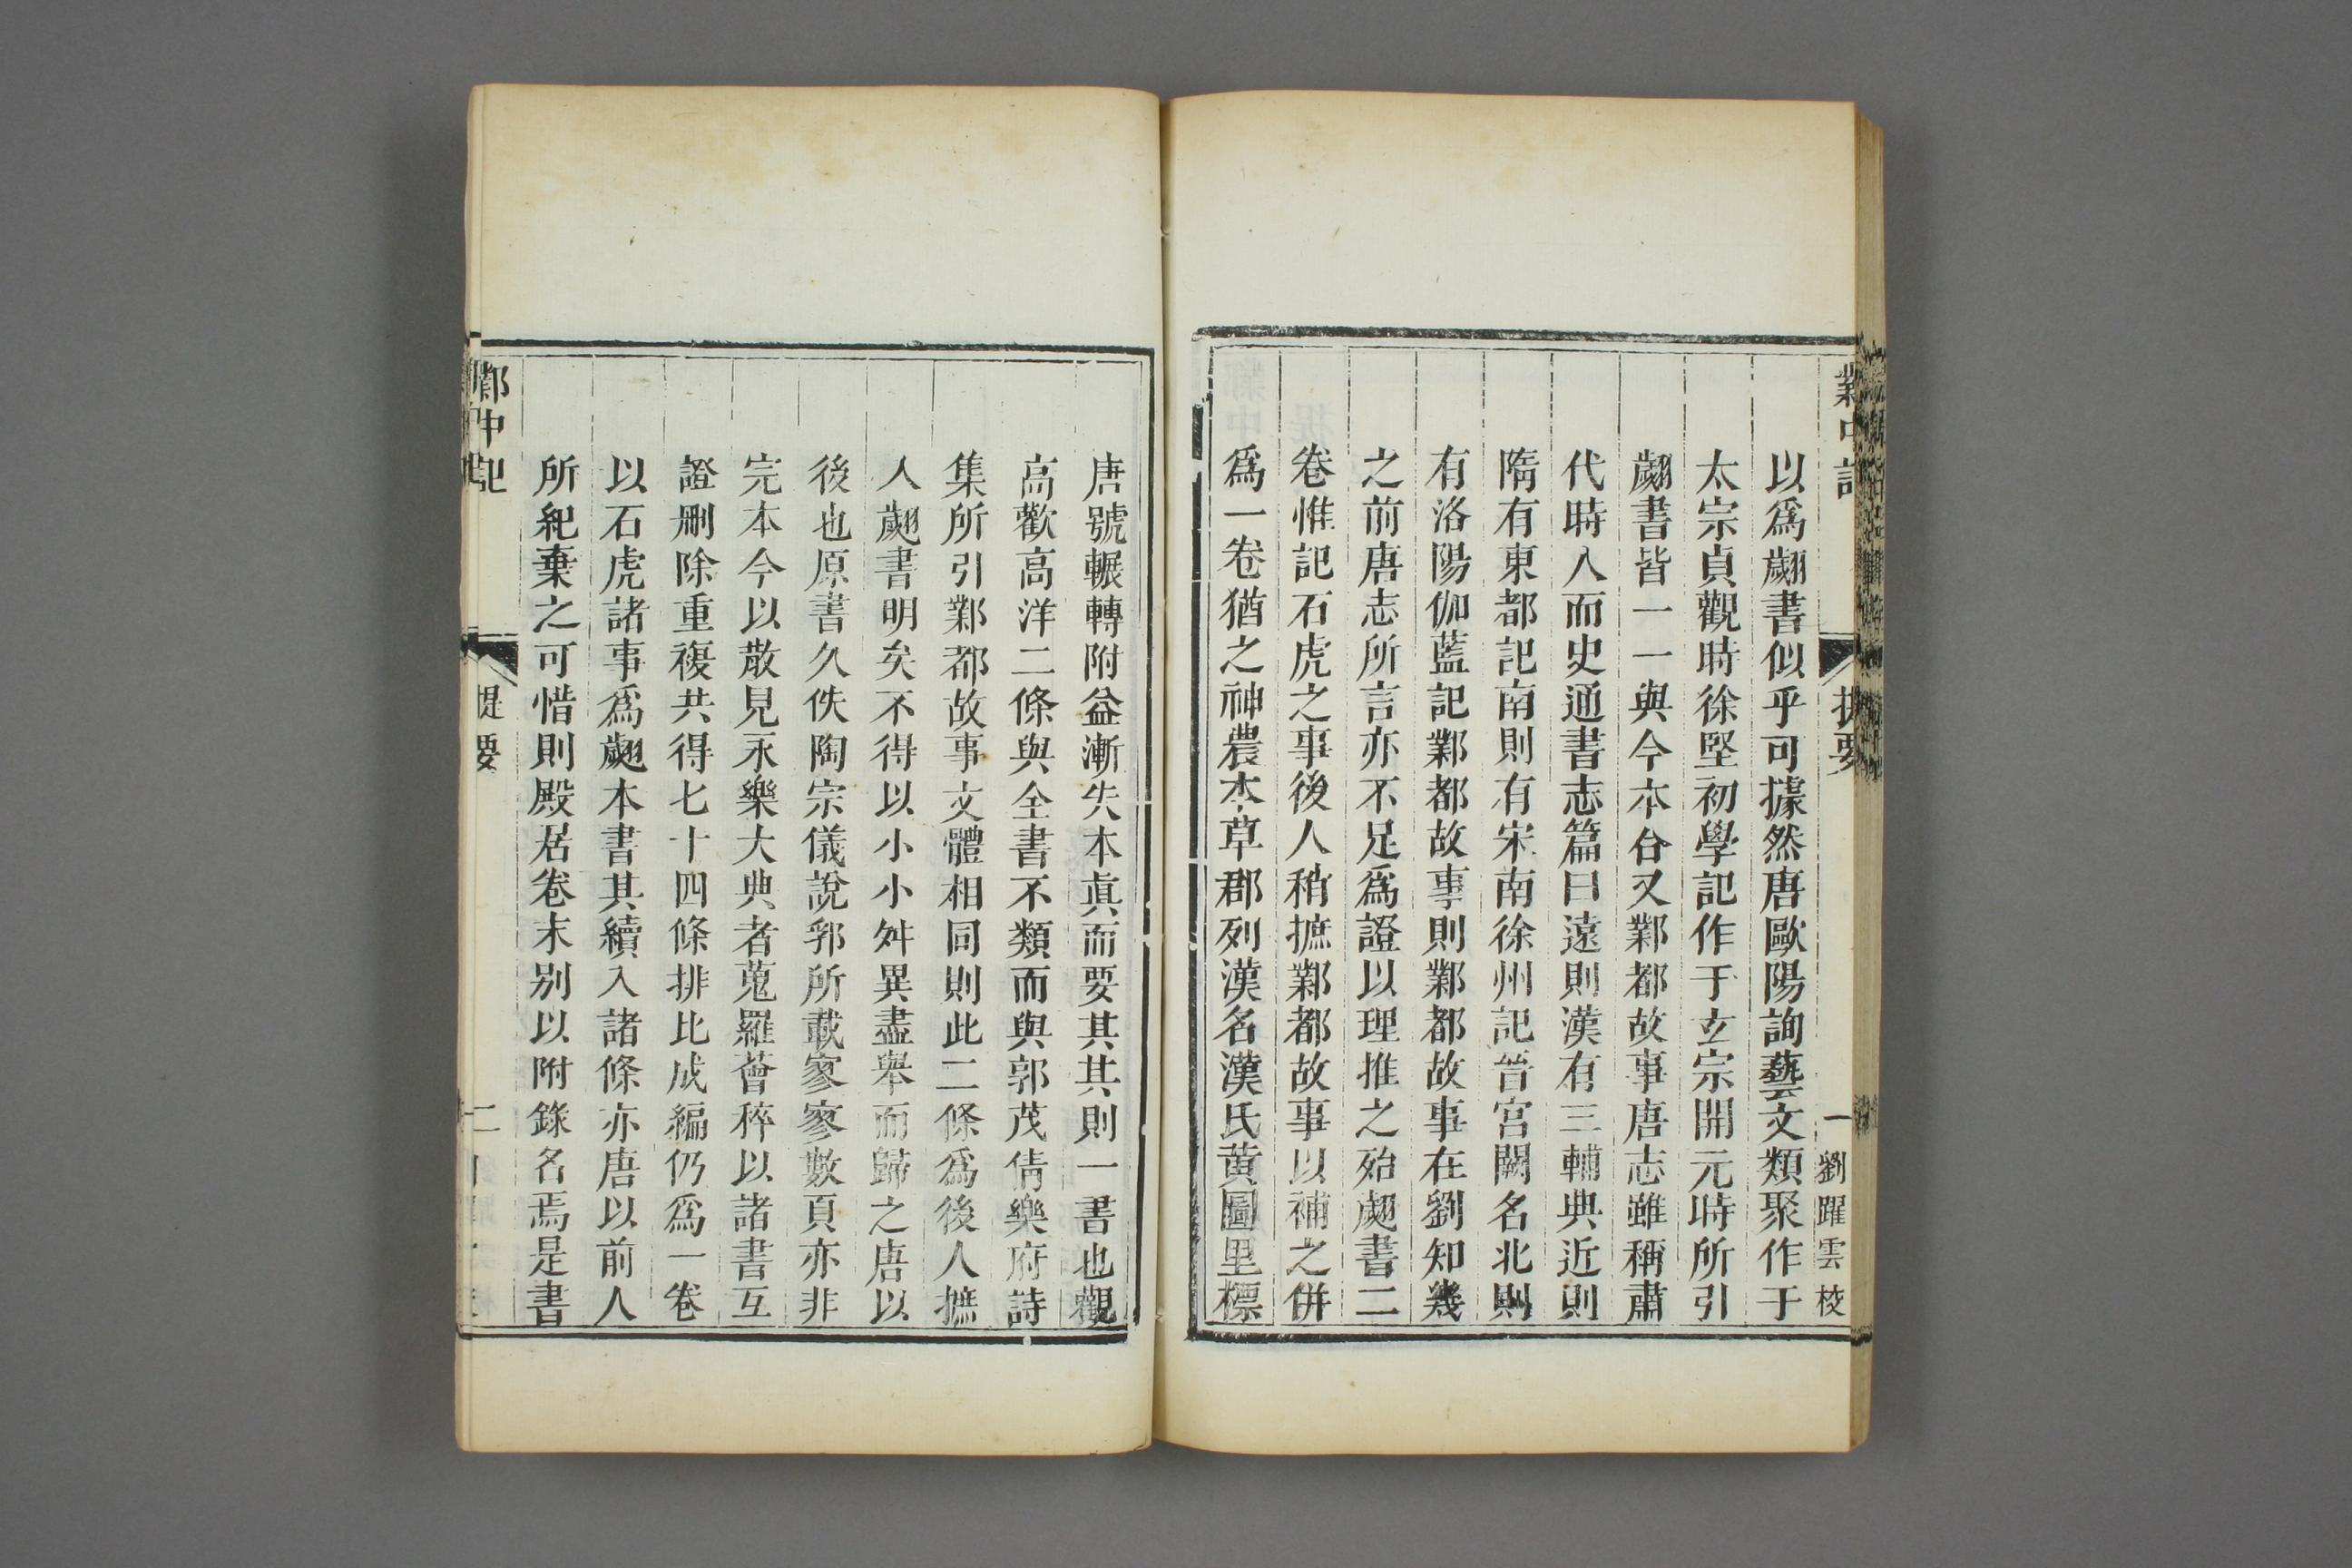 鄴中記
提要
一
劉躍雲校
以爲翽書似乎可據然唐歐陽詢藝文類聚作于
太宗貞觀時徐堅初學記作于玄宗開元時所引
翽書皆一一與今本合又鄴都故事唐志雖稱肅
代時人而史通書志篇曰遠則漢有三輔典近則
隋有東都記南則有宋南徐州記晉宮闕名北則
有洛陽伽藍記鄴都故事則鄴都故事在劉知幾
之前唐志所言亦不足爲證以理推之殆翽書二
卷惟記石虎之事後人稍摭鄴都故事以補之併
爲一卷猶之神農本草郡列漢名漢氏黃圖里標
唐號輾轉附益漸失本眞而要其其則一書也觀
高歡高洋二條與全書不類而與郭茂倩樂府詩
集所引鄴都故事文體相同則此二條爲後人摭
入翽書明矣不得以小小舛異盡舉而歸之唐以
後也原書久佚陶宗儀說郛所載寥寥數頁亦非
完本今以散見永樂大典者蒐羅薈稡以諸書互
證刪除重複共得七十四條排比成編仍爲一卷
以石虎諸事爲翽本書其續入諸條亦唐以前人
所紀棄之可惜則殿居卷末别以附錄名焉是書
鄴中記
提要
二